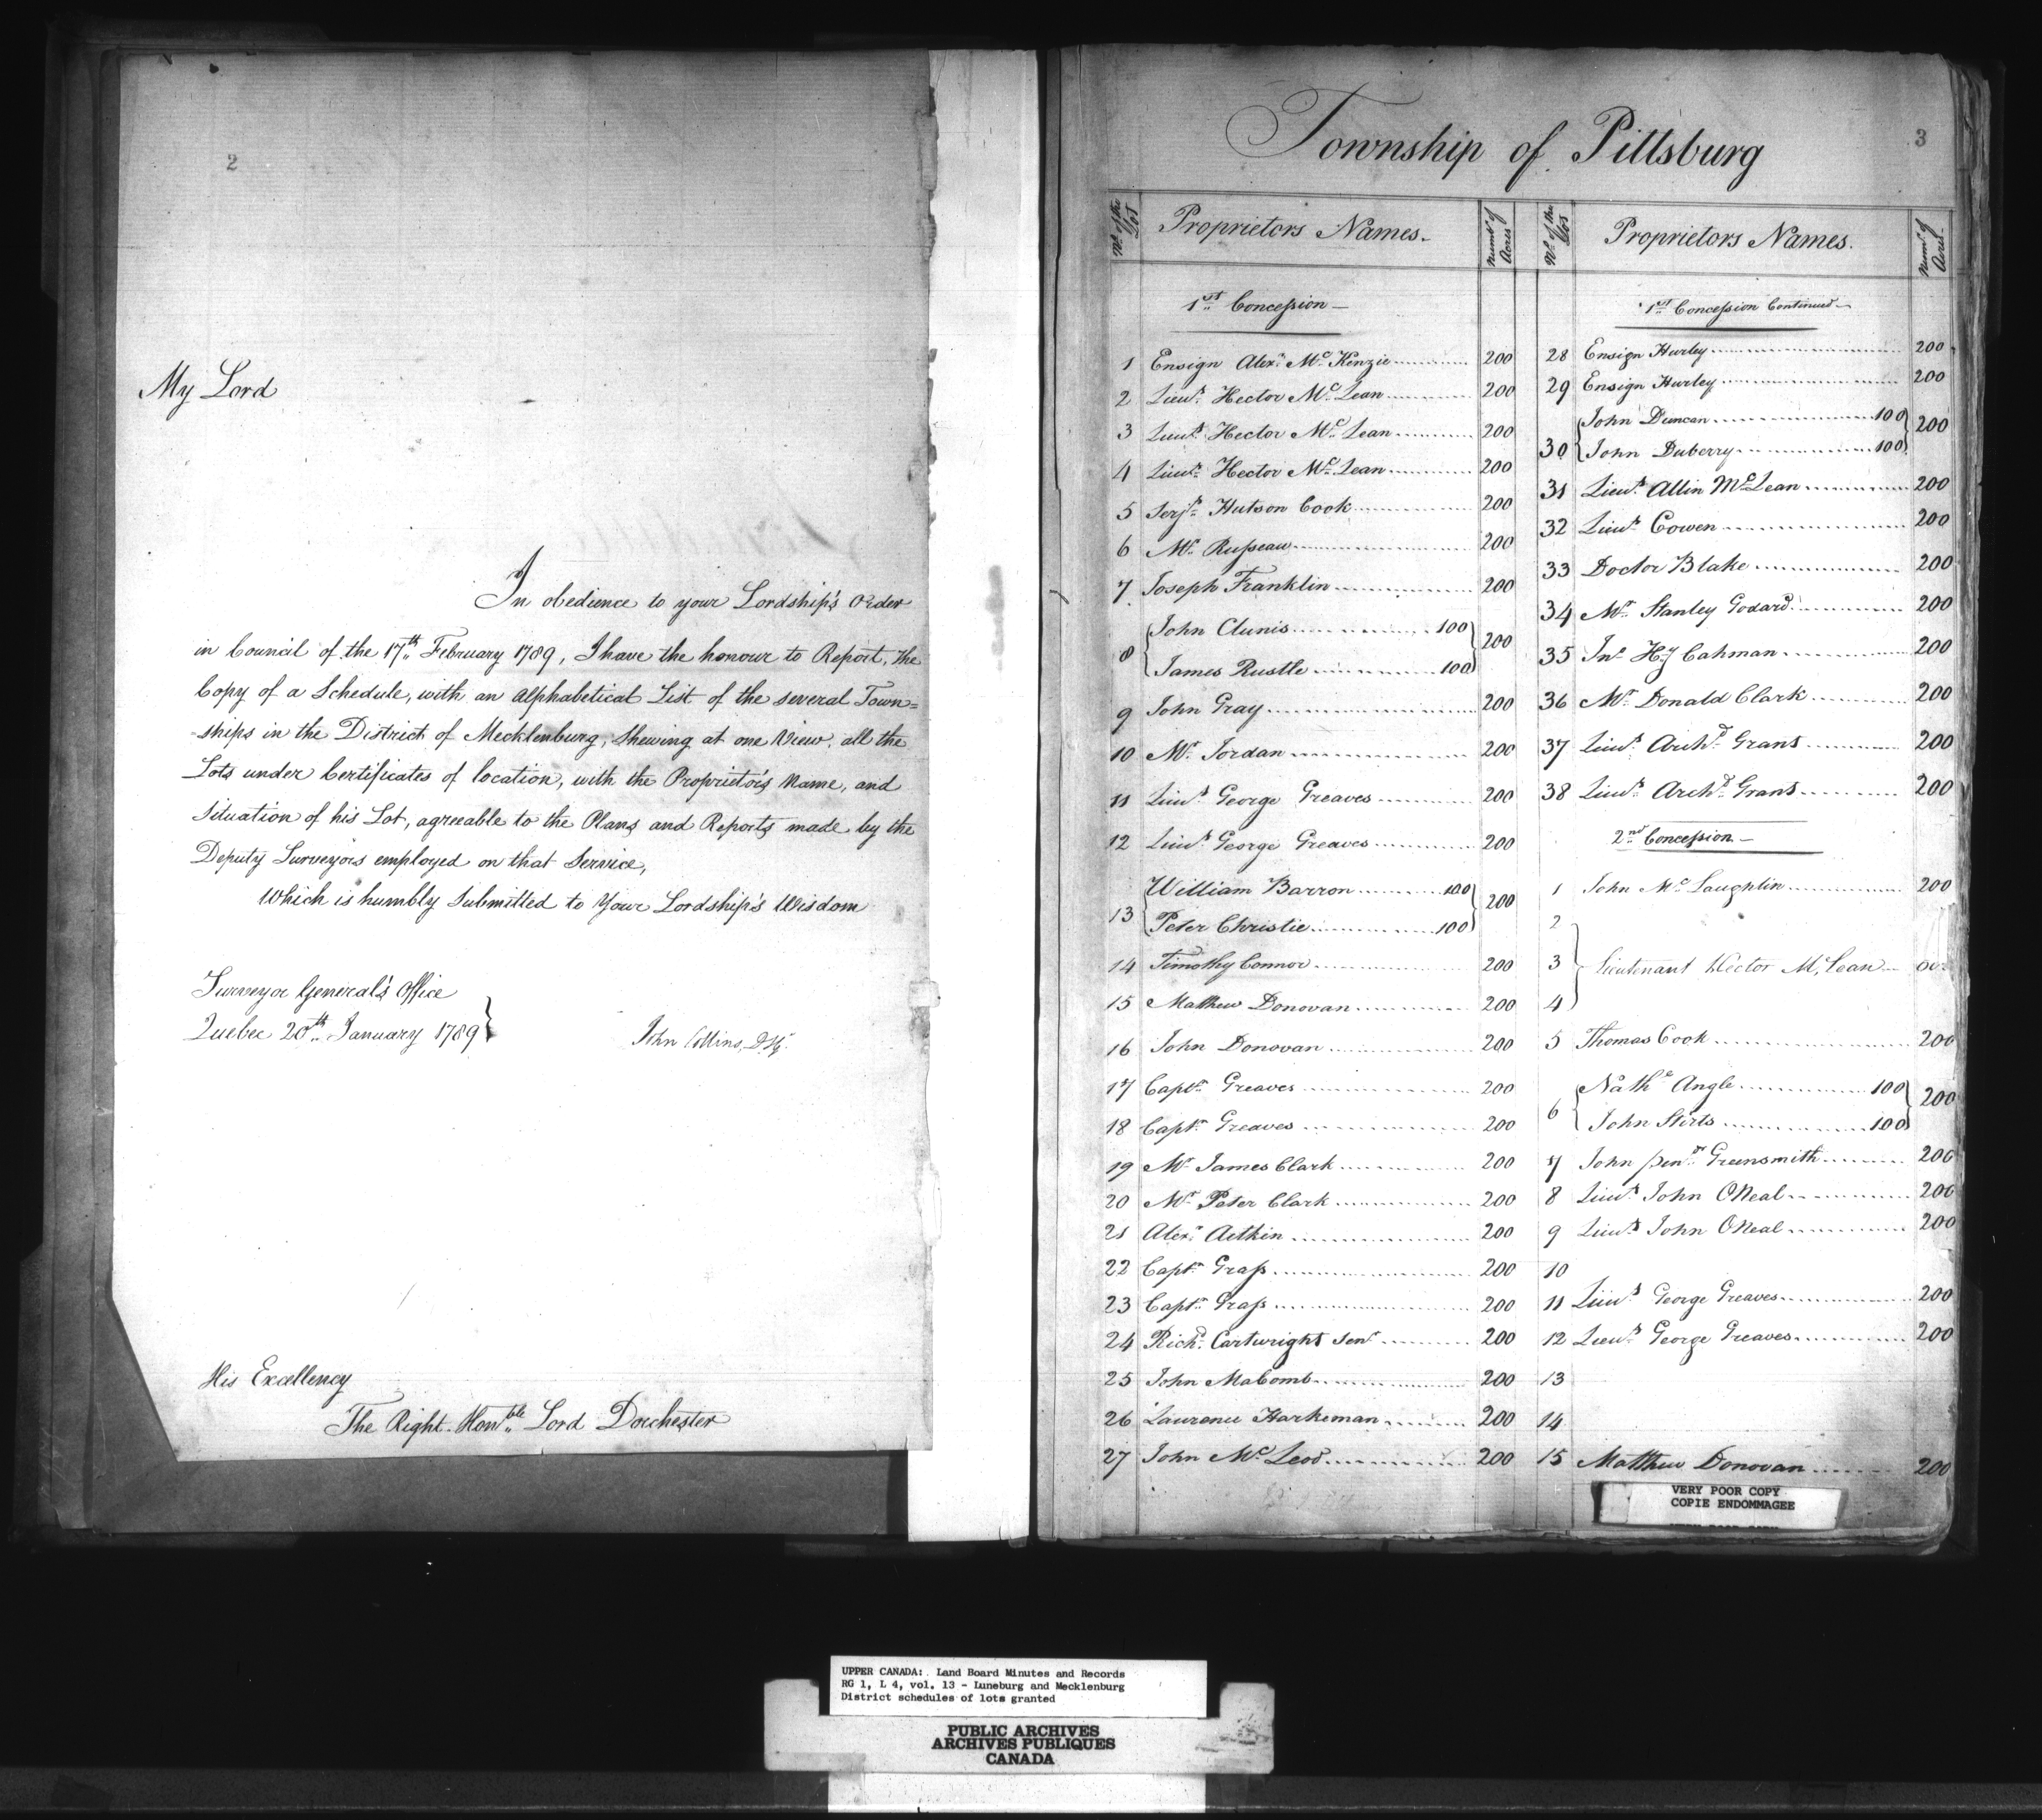 2
My Lord
In obedience to your Lordship's Order
in Council of the 17th February 1789, I have the honour to Report, the
Copy of a Schedule, with an Alphabetical List of the several Town=
ships in the District of Mecklenburg, Shewing at one View, all the
Lots under Certificates of location, with the Proprietor's Name, and
Situation of his Lot, agreeable to the Plans and Reports made by the
Deputy Surveyors employed on that Service,
Which is humbly Submitted to Your Lordship's Wisdom
Surveyor General's Office
Quebec 20th January 1789
John Collins, D.S.G.
His Excellency
The Right Honble Lord Dorchester
3
Township of Pittsburg
No. of the Lot Proprietors Names. Numbr of Acres
1st Concession
1 Ensign Alexr McKenzie 200
2 Lieut Hector McLean 200
3 Lieut Hector McLean 200
4 Lieut Hector McLean 200
5 Serjt Hutson Cook 200
6 Mr Russeau 200
7 Joseph Franklin 200
8 John Clunis 100 200
James Rustle 100
9 John Gray 200
10 Mr Jordan 200
11 Lieut George Greaves 200
12 Lieut George Greaves 200
13 William Barron 100 200
Peter Christie 100
14 Timothy Connor 200
15 Matthew Donovan 200
16 John Donovan 200
17 Captn Greaves 200
18 Captn Greaves 200
19 Mr James Clark 200
20 Mr Peter Clark 200
21 Alexr Aitkin 200
22 Captn Grass 200
23 Captn Grass 200
24 Richd Cartwright Senr 200
25 John Macomb 200
26 Laurence Harkeman 200
27 John McLeod 200
No. of the Lot Proprietors Names. Numr of Acres
1st Concession Continued
28 Ensign Hurley 200
29 Ensign Hurley 200
30 John Duncan 100 200
John Duberry 100
31 Lieut Allin McLean 200
32 Lieut Cowen 200
33 Doctor Blake 200
34 Mr Stanley Godard 200
35 Jno Hy Cahman 200
36 Mr Donald Clark 200
37 Lieut Archd Grant 200
38 Lieut Archd Grant 200
2nd Concession
1 John McLaughlin 200
2
3 Lieutenant Hector McLean
4
5 Thomas Cook 200
6 Nathl Angle 100 200
John Stirts 100
7 John Greensmith 200
8 Lieut John ONeal 200
9 Lieut John ONeal 200
10
11 Lieut George Greaves 200
12 Lieut George Greaves 200
13
14
15 Matthew Donovan 200
VERY POOR COPY
COPIE ENDOMMAGEE
UPPER CANADA: Land Board Minutes and Records
RG 1, L 4, vol. 13 - Luneburg and Mecklenburg
District schedules of lots granted
PUBLIC ARCHIVES
ARCHIVES PUBLIQUES
CANADA